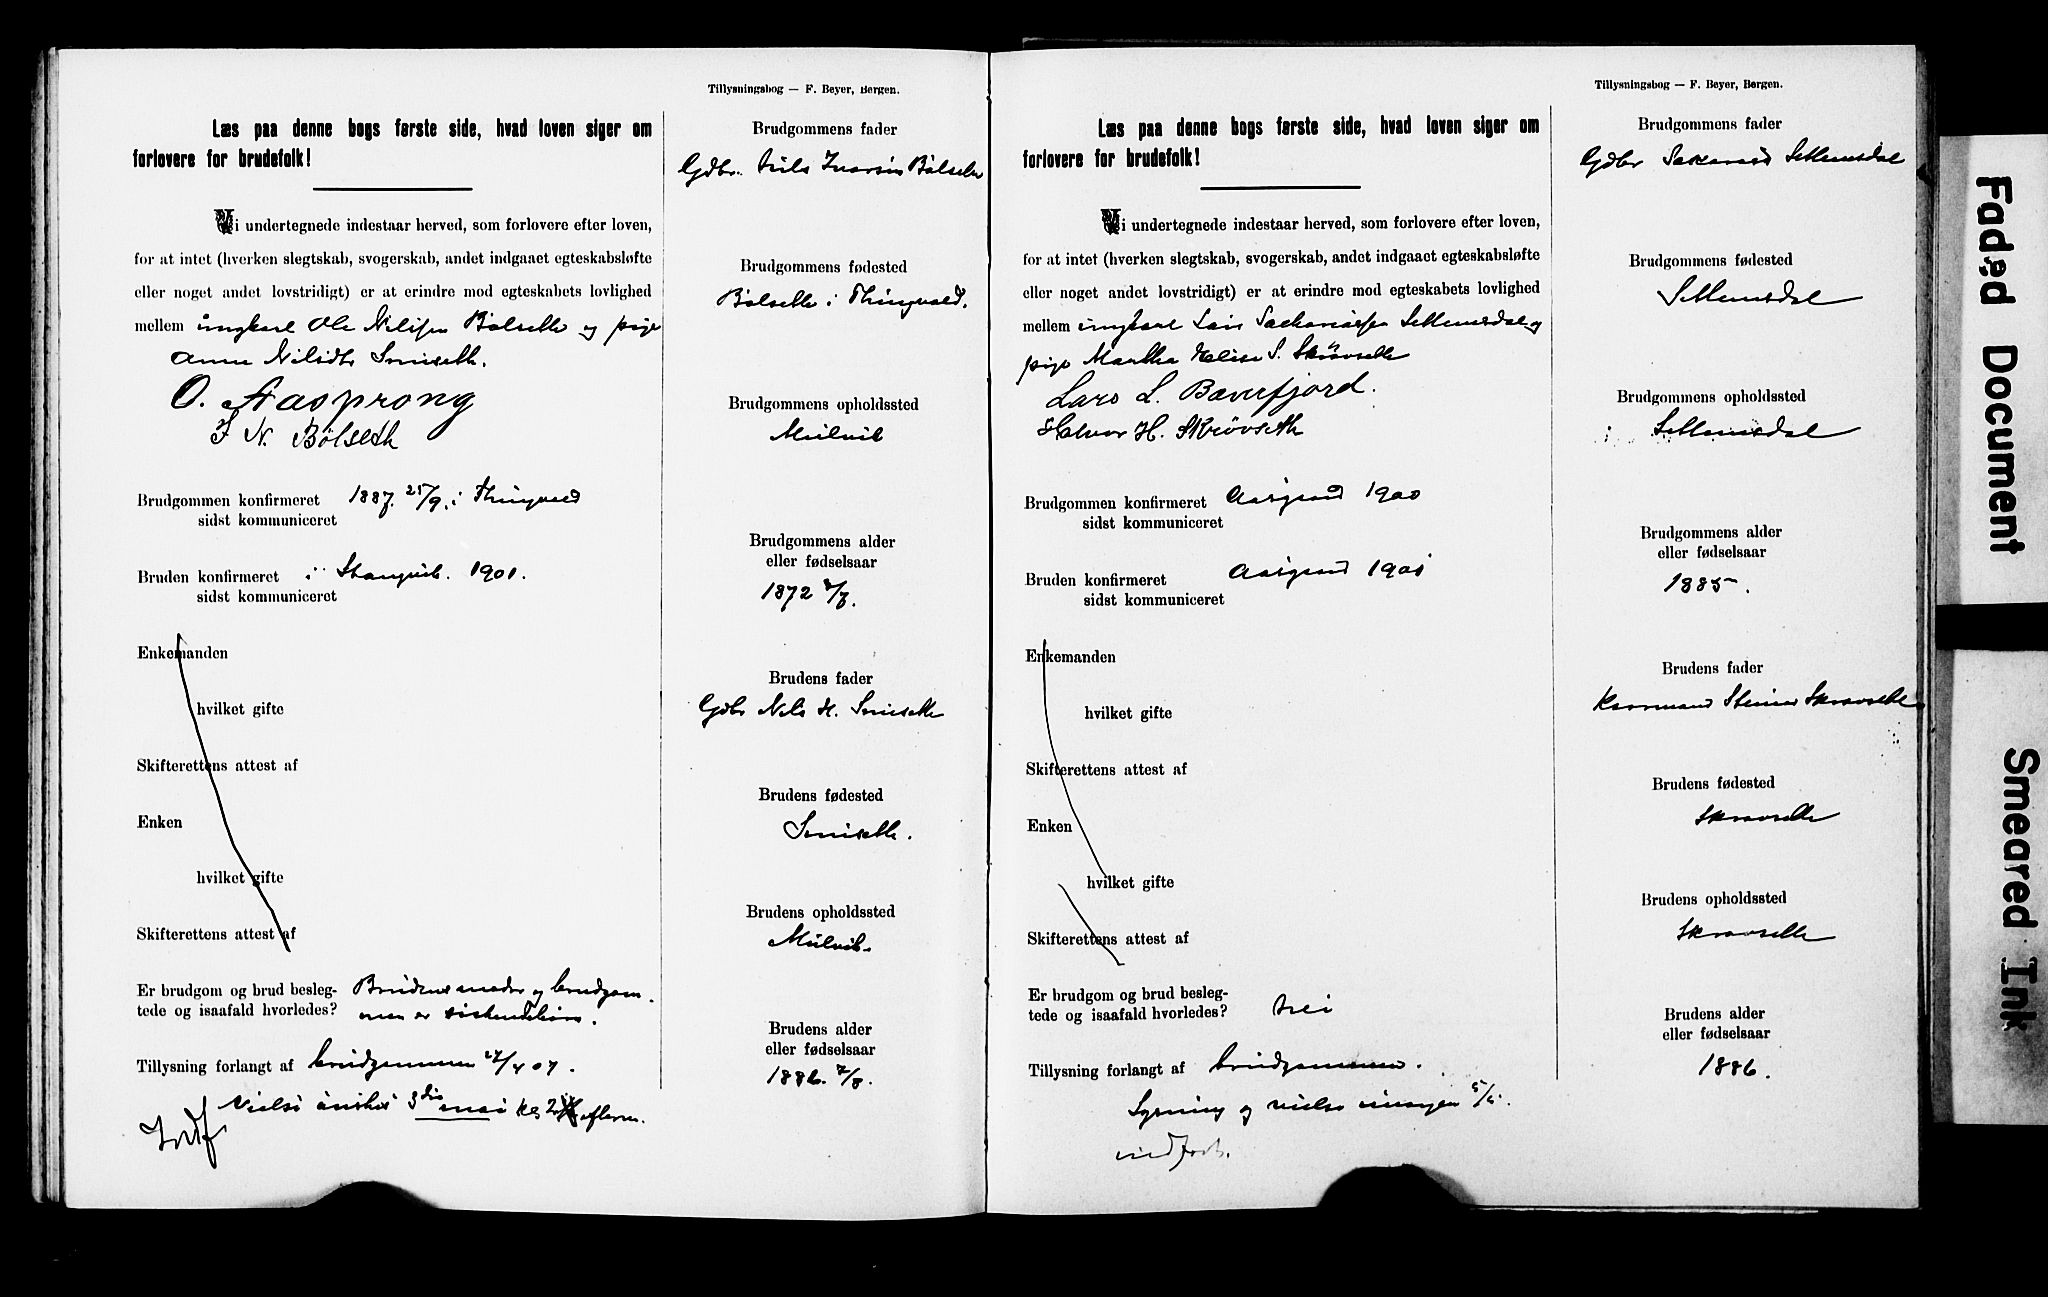 Tillysningsbog — F. Beyer, Bergen.
Læs paa denne bogs første side, hvad loven siger om
forlovere for brudefolk!
Vi undertegnede indestaar herved, som forlovere efter loven,
for at intet (hverken slegtskab, svogerskab, andet indgaaet egteskabsløfte
eller noget andet lovstridigt) er at erindre mod egteskabets lovlighed
mellem ungkarl Ole Nilsen Bølseth og pige
Anne Nilsdtr
O. Aasprong
I N. Bølseth
Brudgommen konfirmeret 1887 25/9. i Thingvold
sidst kommuniceret
Bruden konfirmeret i Stangvik. 1901.
sidst kommuniceret
Enkemanden
hvilket gifte
Skifterettens attest af
Enken
hvilket gifte
Skifterettens attest af
Er brudgom og brud besleg- Brudens moder og brudgom-
tede og isaafald hvorledes? men er søskendebørn.
Tillysning forlangt af brudgommen 27/4 07.
Vielse ønskes 3die mai kl 2 efterm.
Indf
Brudgommens fader
Gdbr. Nils Ivarsen Bølseth
Brudgommens fødested
Bølseth i Thingvold.
Brudgommens opholdssted
Mulvik
Brudgommens alder
eller fødselsaar
1872
Brudens fader
Gdbr Nils H.
Brudens fødested
Brudens opholdssted
Mulvik
Brudens alder
eller fødselsaar
1886.
Tillysningsbog — F. Beyer, Bergen.
Læs paa denne bogs første side, hvad loven siger om
forlovere for brudefolk!
Vi undertegnede indestaar herved, som forlovere efter loven,
for at intet (hverken slegtskab, svogerskab, andet indgaaet egteskabsløfte
eller noget andet lovstridigt) er at erindre mod egteskabets lovlighed
mellem ungkarl Lars Sakariassen Settemsdal og
pige Martha Elise S. Skrøvseth
Lars L. Bæverfjord.
Halvor H. Skrøvseth
Brudgommen konfirmeret Aasgaard 1900
sidst kommuniceret
Bruden konfirmeret Aasgaard 1901
sidst kommuniceret
Enkemanden
hvilket gifte
Skifterettens attest af
Enken
hvilket gifte
Skifterettens attest af
Er brudgom og brud besleg-
tede og isaafald hvorledes? Nei
Tillysning forlangt af brudgommen.
Lysning og vielse
indført.
Brudgommens fader
Gdbr Sakarias Settemsdal
Brudgommens fødested
Settemsdal
Brudgommens opholdssted
Settemsdal
Brudgommens alder
eller fødselsaar
1885.
Brudens fader
Kaarmand Steinar Skrøvseth
Brudens fødested
Skrøvseth
Brudens opholdssted
Skrøvseth
Brudens alder
eller fødselsaar
1886.
Faded Document
Smeared Ink